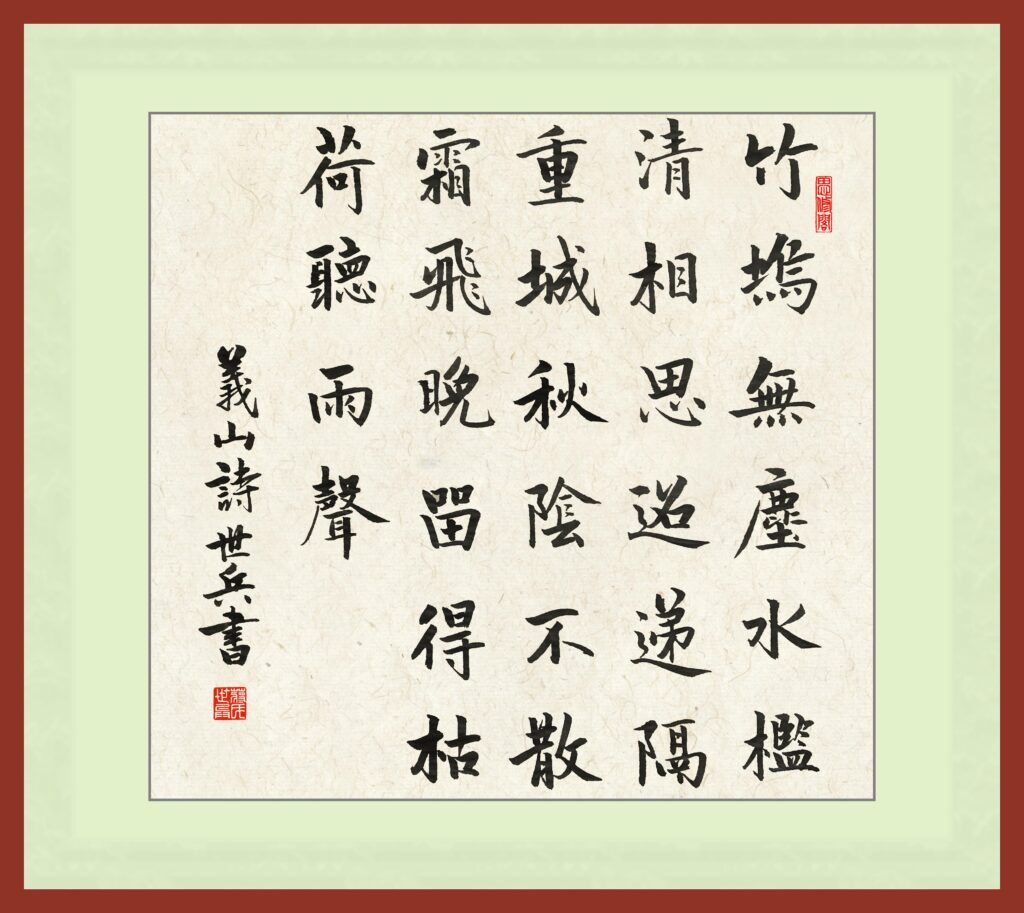 竹塢無塵水檻
清相思迢遞隔
重城秋陰不散
霜飛晚留得枯
荷聽雨聲
義山詩世兵書